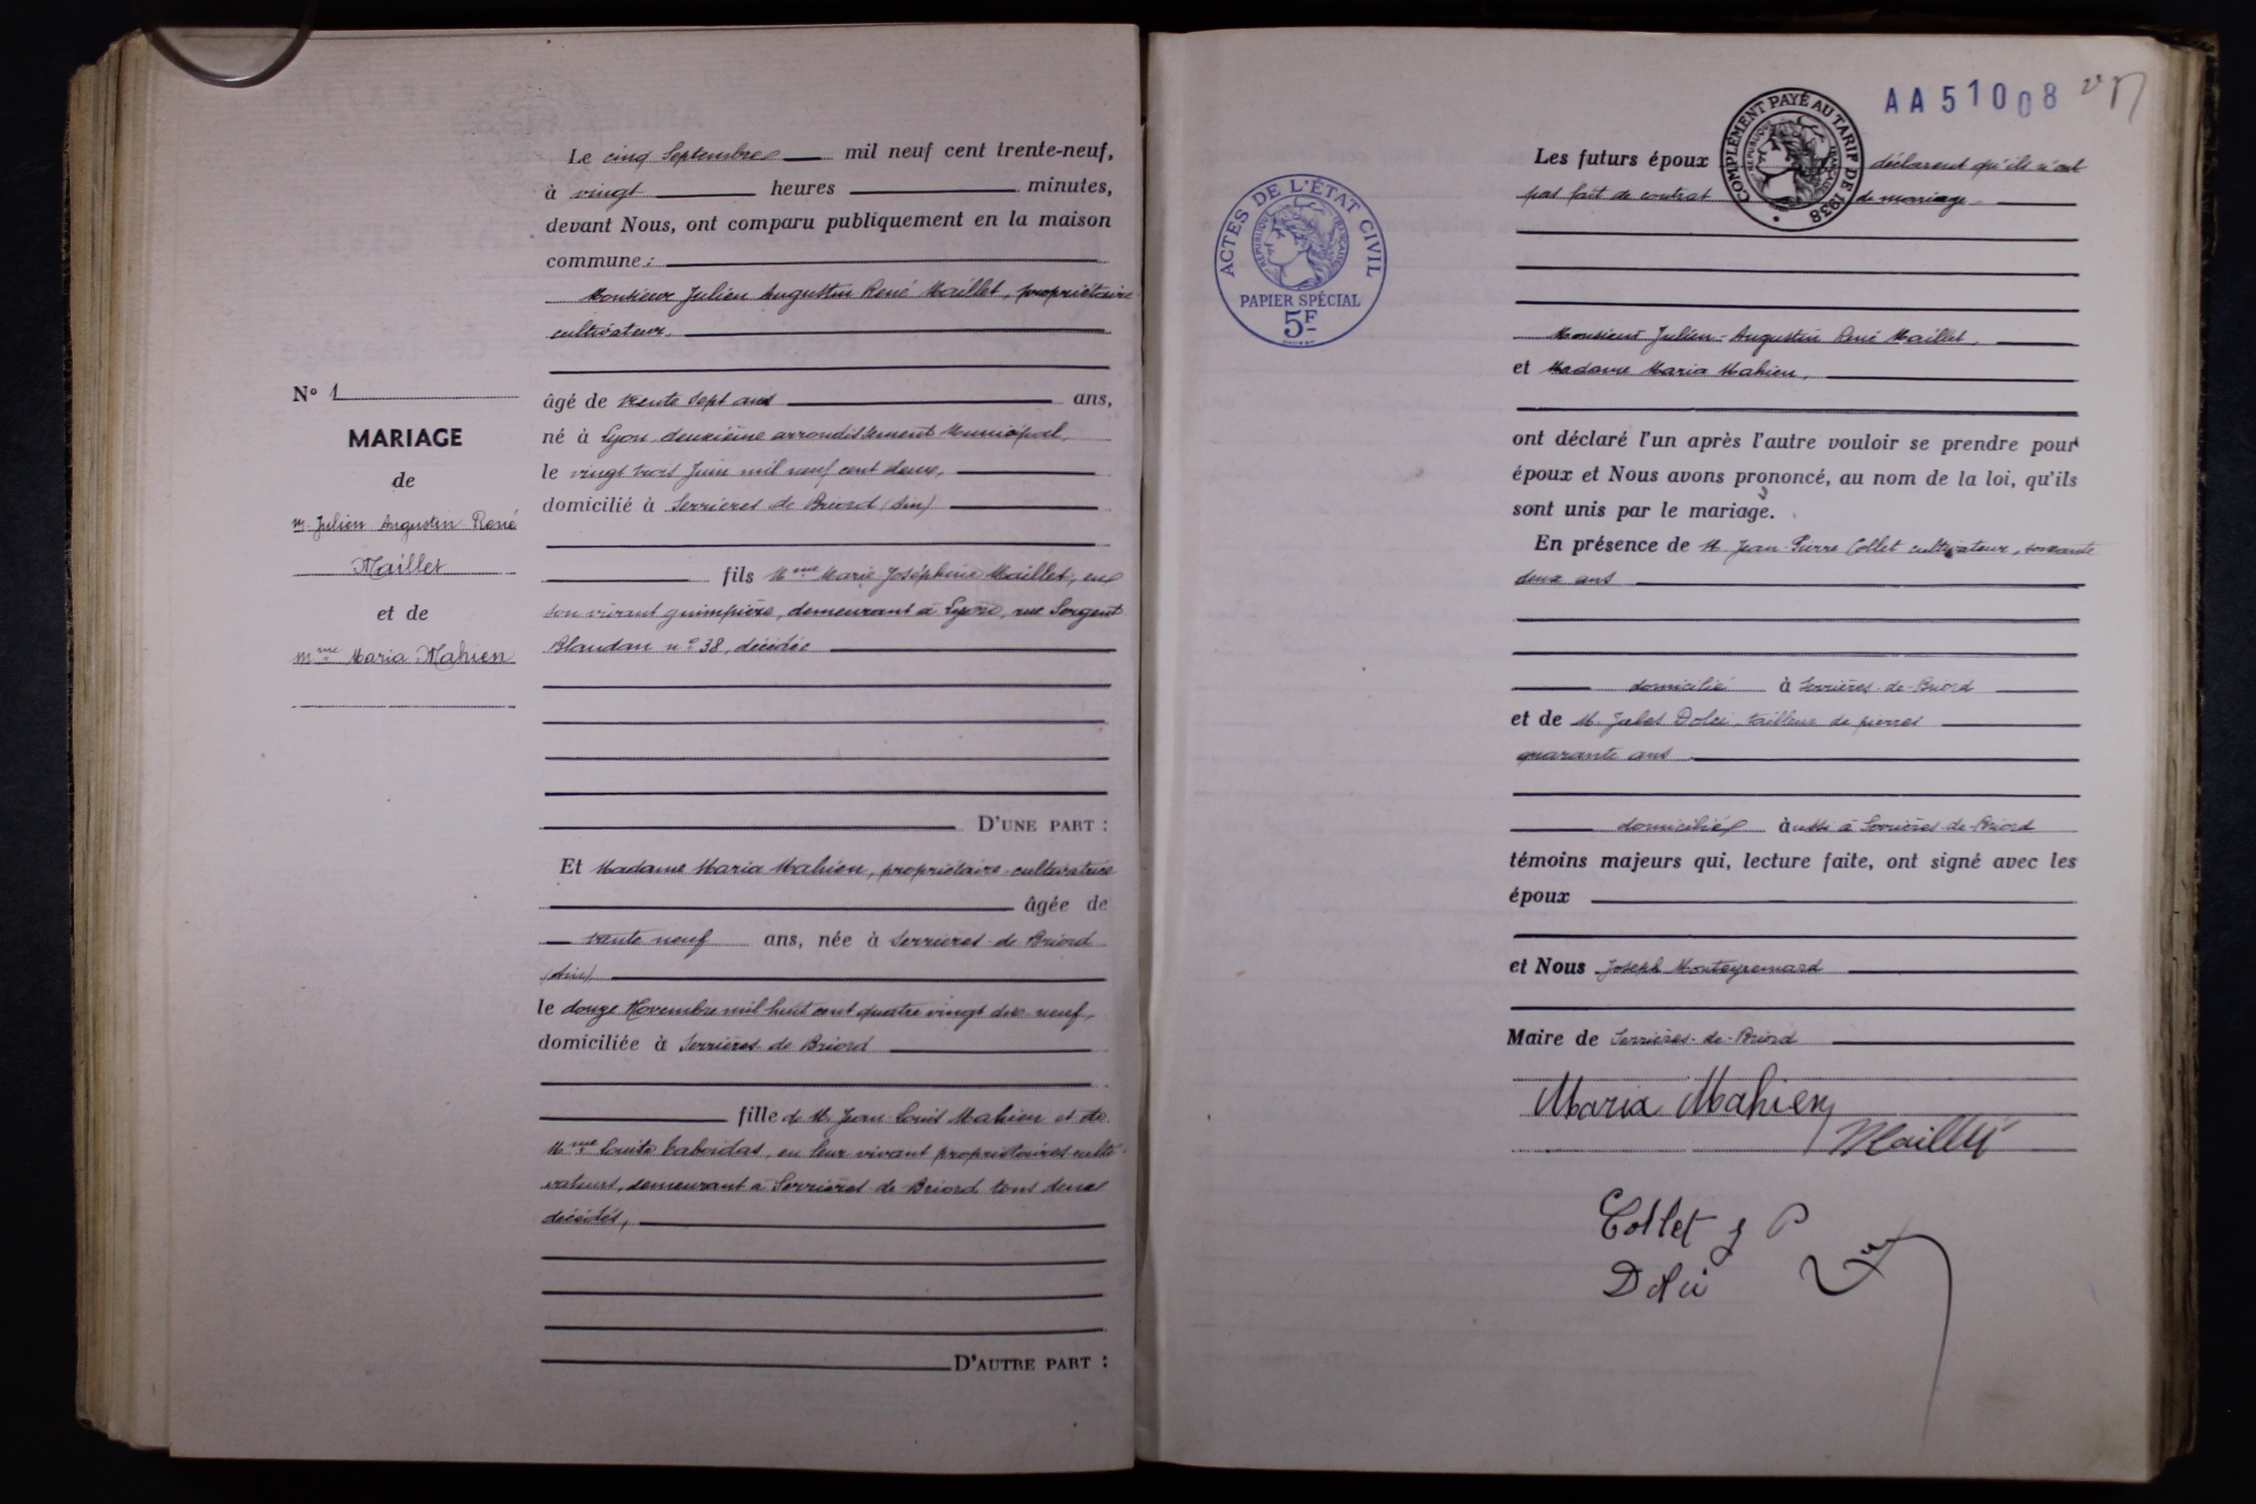 Le cinq Septembre mil neuf cent trente-neuf,
à vingt heures minutes,
devant Nous, ont comparu publiquement en la maison
commune :
Monsieur Julien Augustin René Maillet, propriétaire
cultivateur.
N° 1
MARIAGE
de
M. Julien Augustin René
Maillet
et de
Mme Maria Mahien
âgé de trente sept ans ans,
né à Lyon deuxième arrondissement Municipal,
le vingt trois Juin mil neuf cent deux,
domicilié à Serrières de Briord (Ain)
fils Mme Marie Joséphine Maillet, en
son vivant guimpière, demeurant à Lyon, rue Sergent
Blandan n° 38, décédée
D'UNE PART :
Et Madame Maria Mahien, propriétaire-cultivatrice
âgée de
trente neuf ans, née à Serrières de Briord
(Ain)
le douze Novembre mil huit cent quatre vingt dix neuf,
domiciliée à Serrières de Briord
fille de M. Jean Louis Mahien et de
Mme en leur vivant propriétaires-culti-
vateurs, demeurant à Serrières de Briord tous deux
décédés,
D'AUTRE PART :
AA51008
COMPLÉMENT PAYÉ AU TARIF DE 1938
RÉPUBLIQUE FRANÇAISE
ACTES DE L'ÉTAT CIVIL
RÉPUBLIQUE FRANÇAISE
PAPIER SPÉCIAL
5F
Les futurs époux déclarent qu'ils n'ont
pas fait de contrat de mariage.
Monsieur Julien-Augustin René Maillet,
et Madame Maria Mahien,
ont déclaré l'un après l'autre vouloir se prendre pour
époux et Nous avons prononcé, au nom de la loi, qu'ils
sont unis par le mariage.
En présence de M. Jean-Pierre Collet cultivateur, soixante
deux ans
domicilié à Serrières-de-Briord
et de M. Dolci, tailleur de pierres
quarante ans
domicilié aussi à Serrières-de-Briord
témoins majeurs qui, lecture faite, ont signé avec les
époux
et Nous Joseph Monteyremard
Maire de Serrières-de-Briord
Maria Mahien
Maillet
Collet J P
Dolci